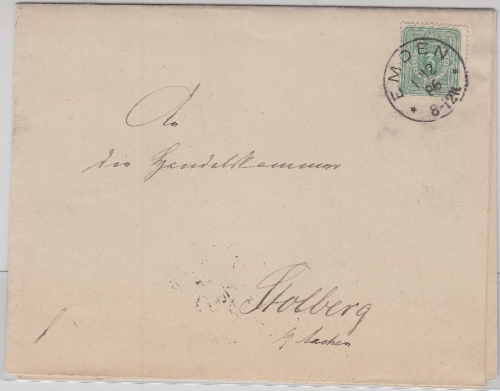 EMDEN
1 12
86
8-12N
An
die Handelskammer
Stolberg
b/ Aachen